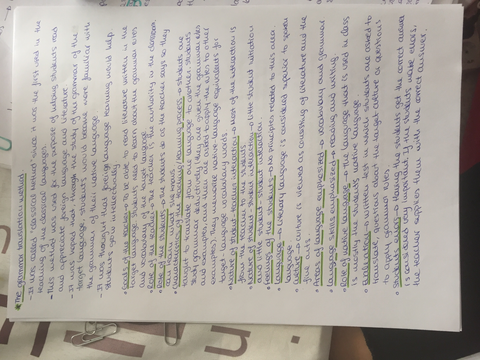 * The grammar translation method
- It was called "classical method" since it was the first used in the
teaching of the classical languages
- This method was used for the purpose of helping students read
and appreciate foreign language and literature
- It is hoped that through the study of the grammar of the
target language students would become more familiar with
the grammar of their native language
- It was thought that foreign language learning would help
students grow intellectually
• Goals of the teacher → to be able to read literature written in the
target language. Students need to learn about the grammar rules
and vocabulary of the target language
• Role of the teacher → the teacher is the authority in the classroom
• Role of the students → the students do as the teacher says so they
can learn what he/she knows
• Characteristics of the teaching learning process → students are
taught to translate from one language to another. Students
study grammar deductively, they are given the grammar rules
and examples, and then are asked to apply the rules to other
examples. They also memorize native language equivalents for
target language vocabulary words.
• Nature of student teacher interaction → most of the interaction is
from the teacher to the students
• Nature of student student interaction → little student initiation
and little student - student interaction.
• Feelings of the students → no principles related to this area
• Language → literary language is considered superior to spoken
language
• Culture → culture is viewed as consisting of literature and the
fine arts
• Areas of language emphasized → vocabulary and grammar
• Language skills emphasized → reading and writing.
• Role of native language → the language that is used in class
is mostly the students native language.
• Evaluation → written tests in which students are asked to
translate, questions about the target culture or questions
to apply grammar rules
• Student errors → Having the students get the correct answer
is considered very important. If the students make errors,
the teacher supplies them with the correct answer.